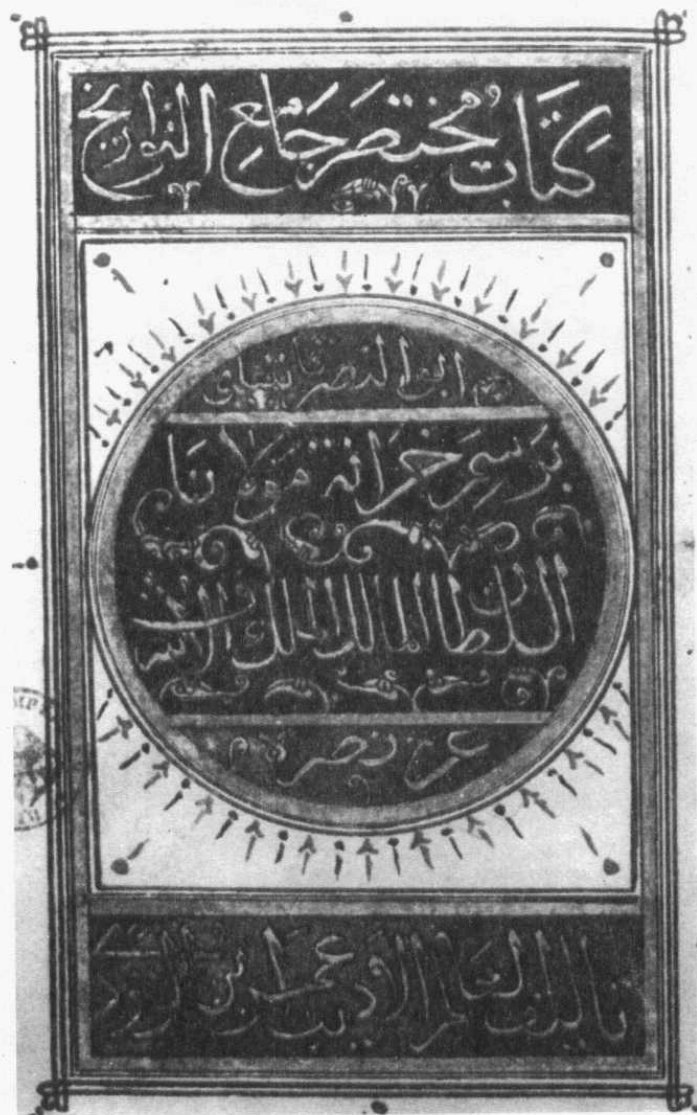 كِتَاب مُختصَر جَامِع التواريخ
ابو النصر قايتباي
برسم خزانة مولانا
السلطان المالك الملك الاشرف
عز نصره
تاليف العالم الاديب عمر بن الوردي